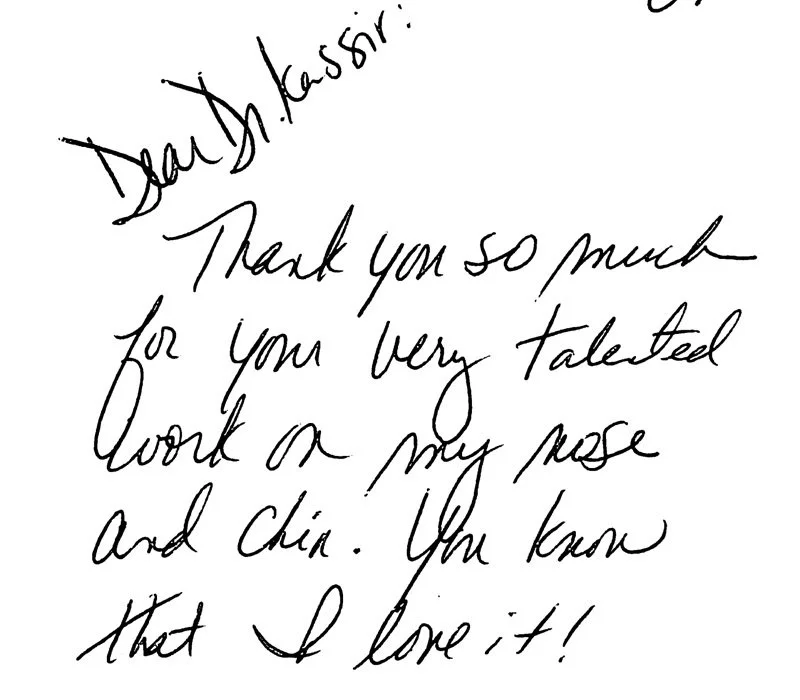 Dear Dr. Kassir:
Thank you so much
for your very talented
work on my nose
and chin. You know
that I love it!